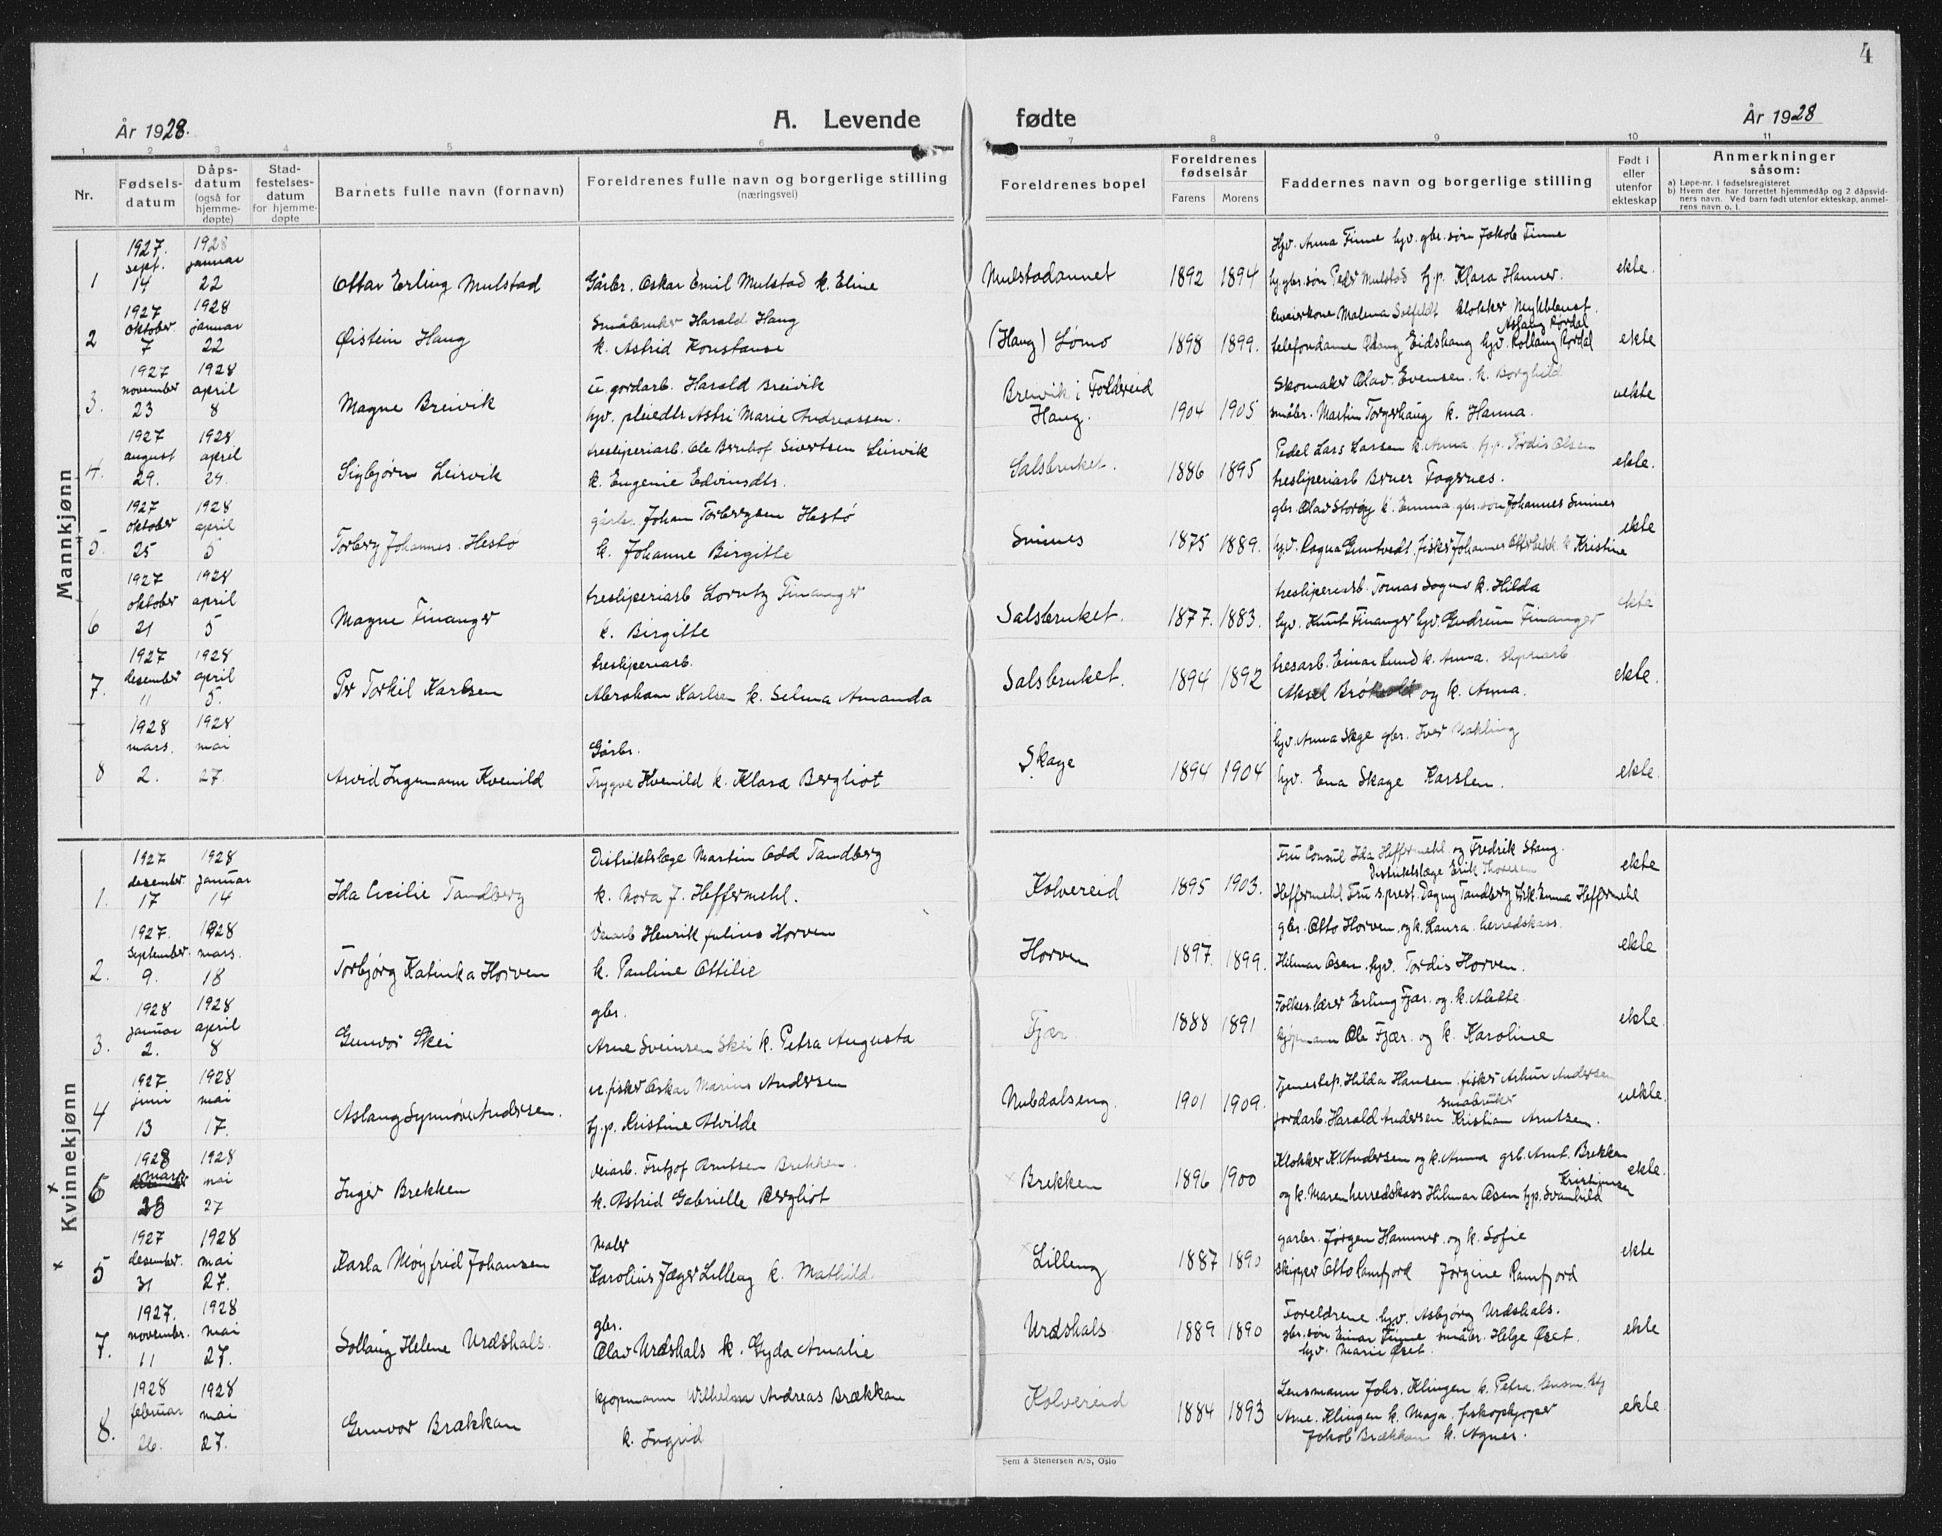 4
År 1928.
A. Levende fødte
År 1928
1 2 3 4 5 6 7 8 9 10 11
Nr.
Fødselsdatum
Dåpsdatum (også for hjemmedøpte)
Stadfestelsesdatum for hjemmedøpte
Barnets fulle navn (fornavn)
Foreldrenes fulle navn og borgerlige stilling (næringsvei)
Foreldrenes bopel
Foreldrenes fødselsår
Farens Morens
Faddernes navn og borgerlige stilling
Født i eller utenfor ekteskap
Anmerkninger såsom:
a) Løpe-nr. i fødselsregisteret
b) Hvem der har forrettet hjemmedåp og 2 dåpsvidners navn. Ved barn født utenfor ekteskap, anmelrens navn o. l.
Mannkjønn
1927. 1928
sept. januar
Hjv. Anna Finne hjv. gbr. søn Jakob Finne
1 14 22 Ottar Erling Mulstad Gårbr. Oskar Emil Mulstad k. Eline 1892 1894 hj. gbr. søn Peder Mulstad hj. p. Klara Hanner. ekte.
1927 1928
oktober januar Småbruker Harald Haug
2 7 22 Øistein Haug k. Astrid Konstanse (Haug) Lømo 1898 1899. ekte
1927 1928
november april u. gordarb. Harald Breivik Breivik i Foldereid Skomaker Olav Evensen. k. Borghild
3. 23 8 Magne Breivik hjv. pleiedtr Astri Marie Andreassen. Haug. 1904 1905 småbr. Martin Torgershaug k. Hanna. uekte
1927 1928
august april tresliperiarb. Ole Bernhof Sivertsen Leirvik Pedel Lars Larsen k. Anna hj. p. Kordis Olsen
4. 29. 29. Sigbjørn Leirvik k. Eugenie Edvinsdtr. Salsbruket. 1886 1895 tresliperiarb Bruer Fagernes. ekte.
1927 1928
oktober april gårbr. Johan Torbergsen Hestø gbr Olav Storøy k. Emma gbr. søn Johannes Smines
5. 25 5 Torberg Johannes Hestø k. Johanne Birgitte Smines 1875 1889. ekte
1927 1928
oktober april tresliperiarb Lorntz Finanger tresliperiarb. Tomas Sagmo k. Hilda
6 21 5 Magne Finanger k. Birgitte Salsbruket. 1877. 1883. hjv. Knut Finanger hjv. Gudrun Finanger ekte
1927 1928
desember april tresliperiarb. tresarb. Einar Lund k. Anna. sliperiarb
7. 11 5. Per Torkil Karlsen Abraham Karlsen k. Selma Amanda Salsbruket. 1894 1892 Aksel og k. Anna. ekte.
1928 1928
mars. mai Gårbr. hjv. Anna Skage gbr. Iver Nakling
8 2. 27. Arvid Ingemann Kvenild Trygve Kvenild k. Klara Bergliot Skage 1894 1904 hjv. Ena Skage Karsten. ekte.
Kvinnekjønn
1927 1928
desember januar Distriktslæge Martin Odd Tandberg Fru Consul Ida Heffermehl og Fredrik Stang. Distriktslæge Erik Thoresen
1. 17 14 Ida Cecilie Tandberg k. Nora f. Heffermehl. Kolvereid 1895 1903. Heffermehl Fru s. prest. Dagny Tandberg frk. Emma Heffermehl ekte
1927. 1928
September. mars. Veiarb Henrik Julius Horven gbr. Otto Horven. og k. Laura herredskass.
2. 9. 18 Torbjørg Katinka Horven k. Pauline Ottilie Horven 1897. 1899. Hilmar Osen. hjv. Tordis Horven. ekte
1928 1928
januar april gbr. Folkes. lærer Erling Fjær. og. k. Alette
3. 2. 8 Gunvor Skei Arne Sveinsen Skei k. Petra Augusta Fjær. 1888 1891 kjøpmann Ole Fjær. og k. Karoline ekte.
1927 1928
juni mai u. fisker Oskar Marius Andersen Tjenestep. Hilda Hansen fisker Arthur Andersen småbruker
4 13 17. Aslaug Synnøve Andersen. hj. p. Kristine Alvilde Nubdalseng. 1901 1909. jordarb. Harald Andersen Kristian Arntsen. uekte.
1928 1928
mars mai veiarb. Fritjof Arntsen Brekken. Klokker K. Andersen og k. Anna grb. Arnt. Brekken Kristiansen
6 28 27 Inger Brekken k. Astrid Gabrielle Bergliot × Brekken 1896 1900 og k. Maren herredskass Hilmar Osen hjp. Svanhild ekte.
1927 1928
desember. mai Maler garbr. Jørgen Hammer og k. Sofie
× 5 31 27. Karla Møyfrid Johansen Karolius Jæger Lilleng k. Mathild. Lilleng 1887 1890 skipper Otto Ramfjord Jørgine Ramfjord ekte
1927. 1928
november. mai gbr. Foreldrene hjv. Asbjørg Urdshals.
7. 11 27. Solaug Helene Urdshals. Olav Urdshals k. Gyda Amalie Urdshals 1889 1890 gbr. søn Einar Finne småbr. Helge Øset. hjv. Marie Øset. ekte
1928 1928
februar mai kjøpmann Wilhelm Andreas Brækkan Lensmann Johs. Klingen k. Petra.
8. 26. 27. Gunvor Brækkan k. Ingrid Kolvereid 1884 1893 Arne. Klingen k. Maja. fiskopkjøper Jakob Brækkan k. Agnes. ekte.
Sem & Stenersen A/S, Oslo